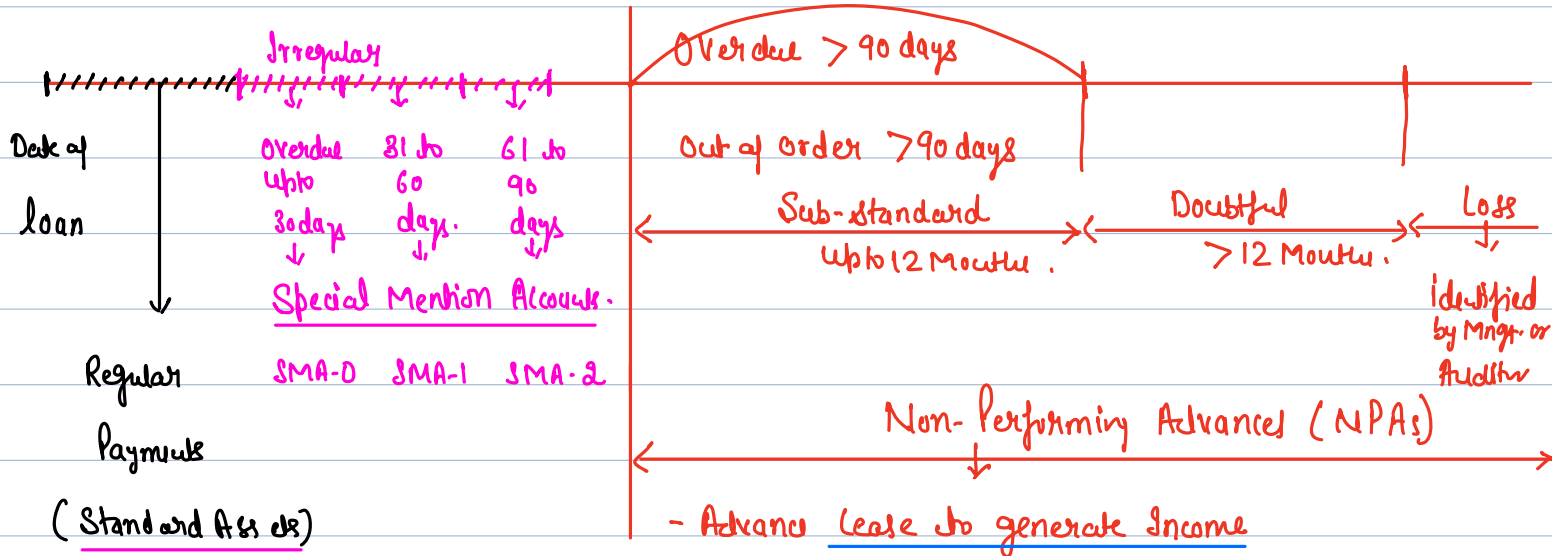 Irregular
Overdue > 90 days
Date of
loan
Overdue
upto
30 days
31 to
60
days.
61 to
90
days
Out of order > 90 days
Sub-standard
upto 12 Months.
Doubtful
> 12 Months.
Loss
identified
by Mngt. or
Auditor
Special Mention Accounts.
SMA-0 SMA-1 SMA-2
Regular
Payments
(Standard Assets)
Non-Performing Advances (NPAs)
- Advance cease to generate Income